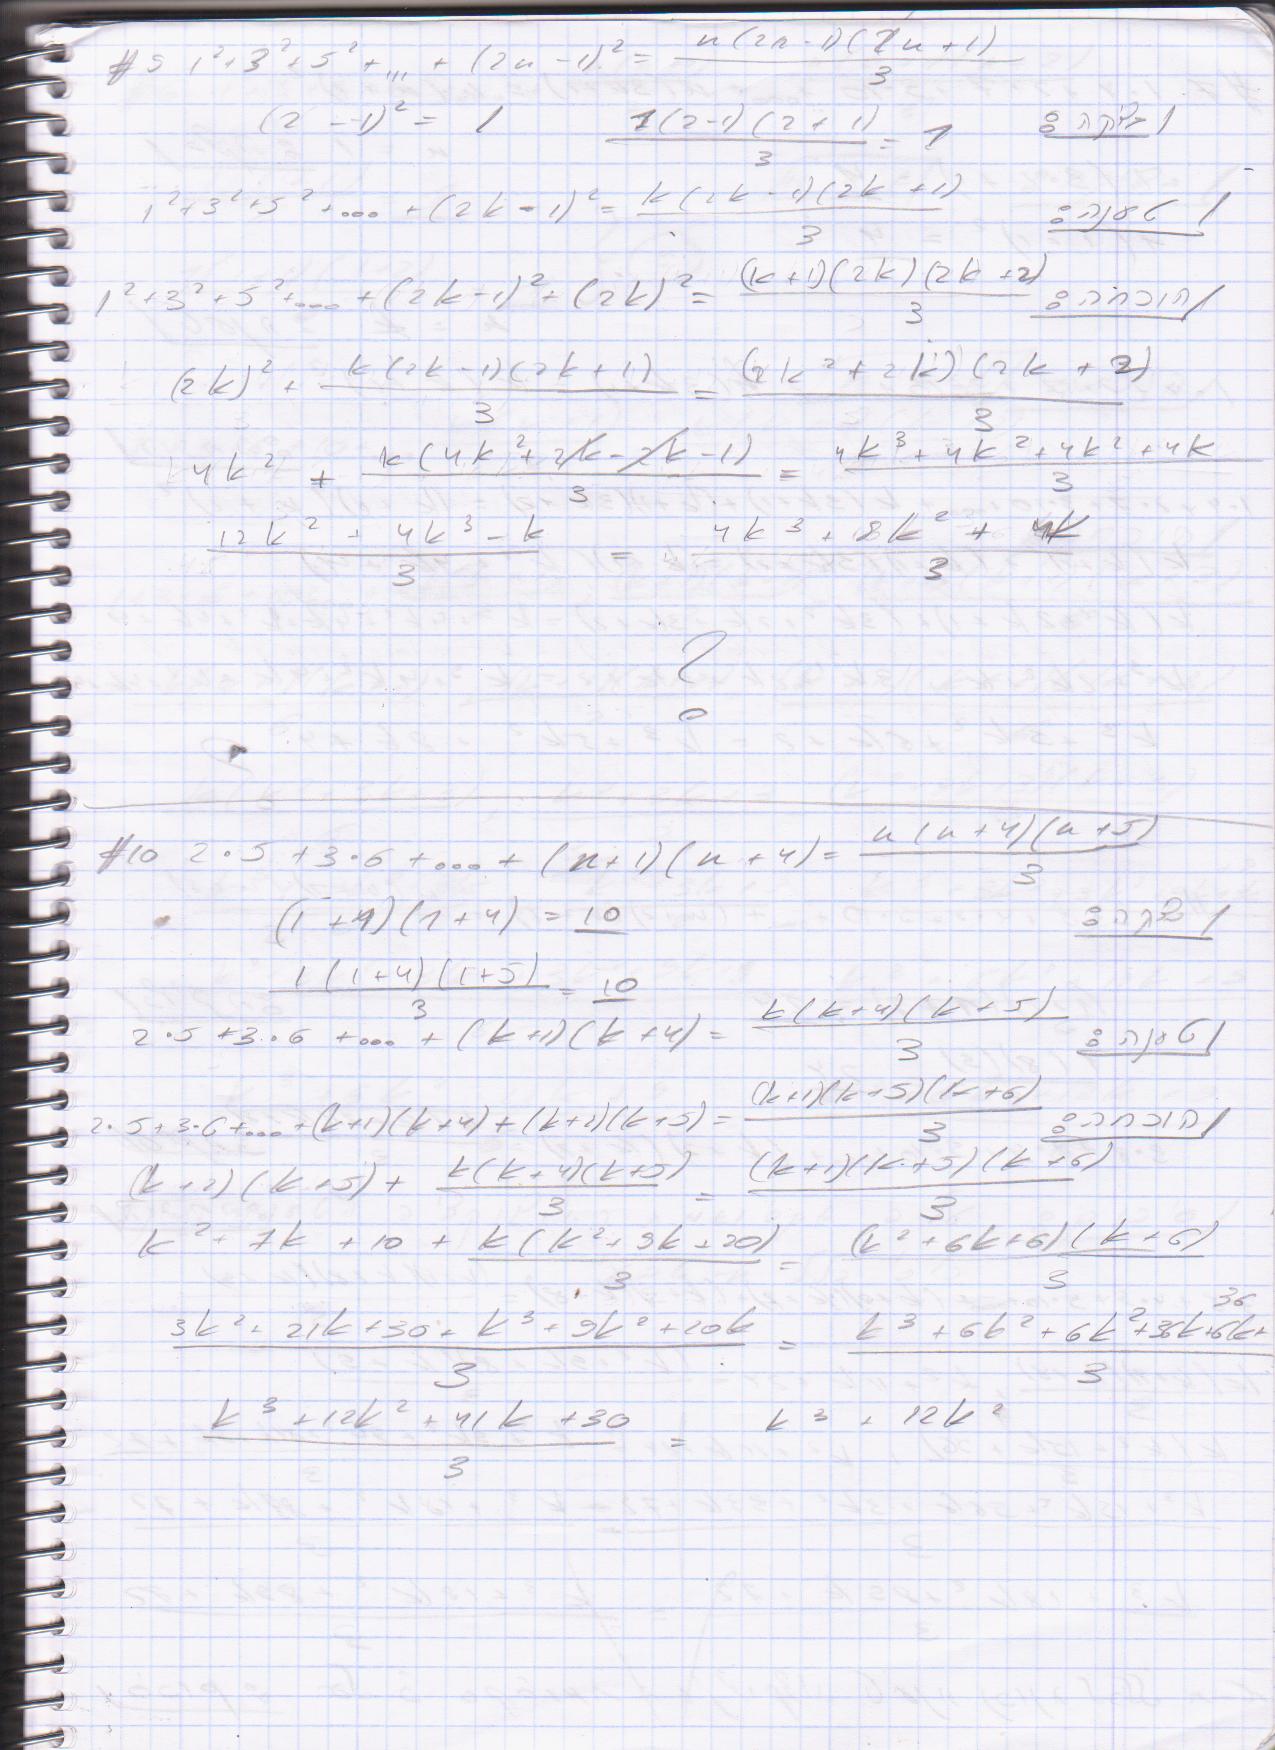 #5 1²+3²+5²+...+(2n-1)² = n(2n-1)(2n+1)/3
בדיקה: (2-1)² = 1 1(2-1)(2+1)/3 = 1
טענה: 1²+3²+5²+....+(2k-1)² = k(2k-1)(2k+1)/3
הוכחה: 1²+3²+5²+....+(2k-1)²+(2k)² = (k+1)(2k)(2k+2)/3
(2k)² + k(2k-1)(2k+1)/3 = (2k²+2k)(2k+2)/3
4k² + k(4k²+2k-2k-1)/3 = 4k³+4k²+4k²+4k/3
12k²+4k³-k/3 = 4k³+8k²+4k/3
?
#10 2·5+3·6+....+(n+1)(n+4) = n(n+4)(n+5)/3
בדיקה: (1+1)(1+4) = 10
1(1+4)(1+5)/3 = 10
טענה: 2·5+3·6+....+(k+1)(k+4) = k(k+4)(k+5)/3
הוכחה: 2·5+3·6+....+(k+1)(k+4)+(k+2)(k+5) = (k+1)(k+5)(k+6)/3
(k+2)(k+5) + k(k+4)(k+5)/3 = (k+1)(k+5)(k+6)/3
k²+7k+10+ k(k²+9k+20)/3 = (k²+6k+6)(k+6)/3
3k²+21k+30+k³+9k²+20k/3 = k³+6k²+6k²+36k+6k+36/3
k³+12k²+41k+30/3 = k³+12k²